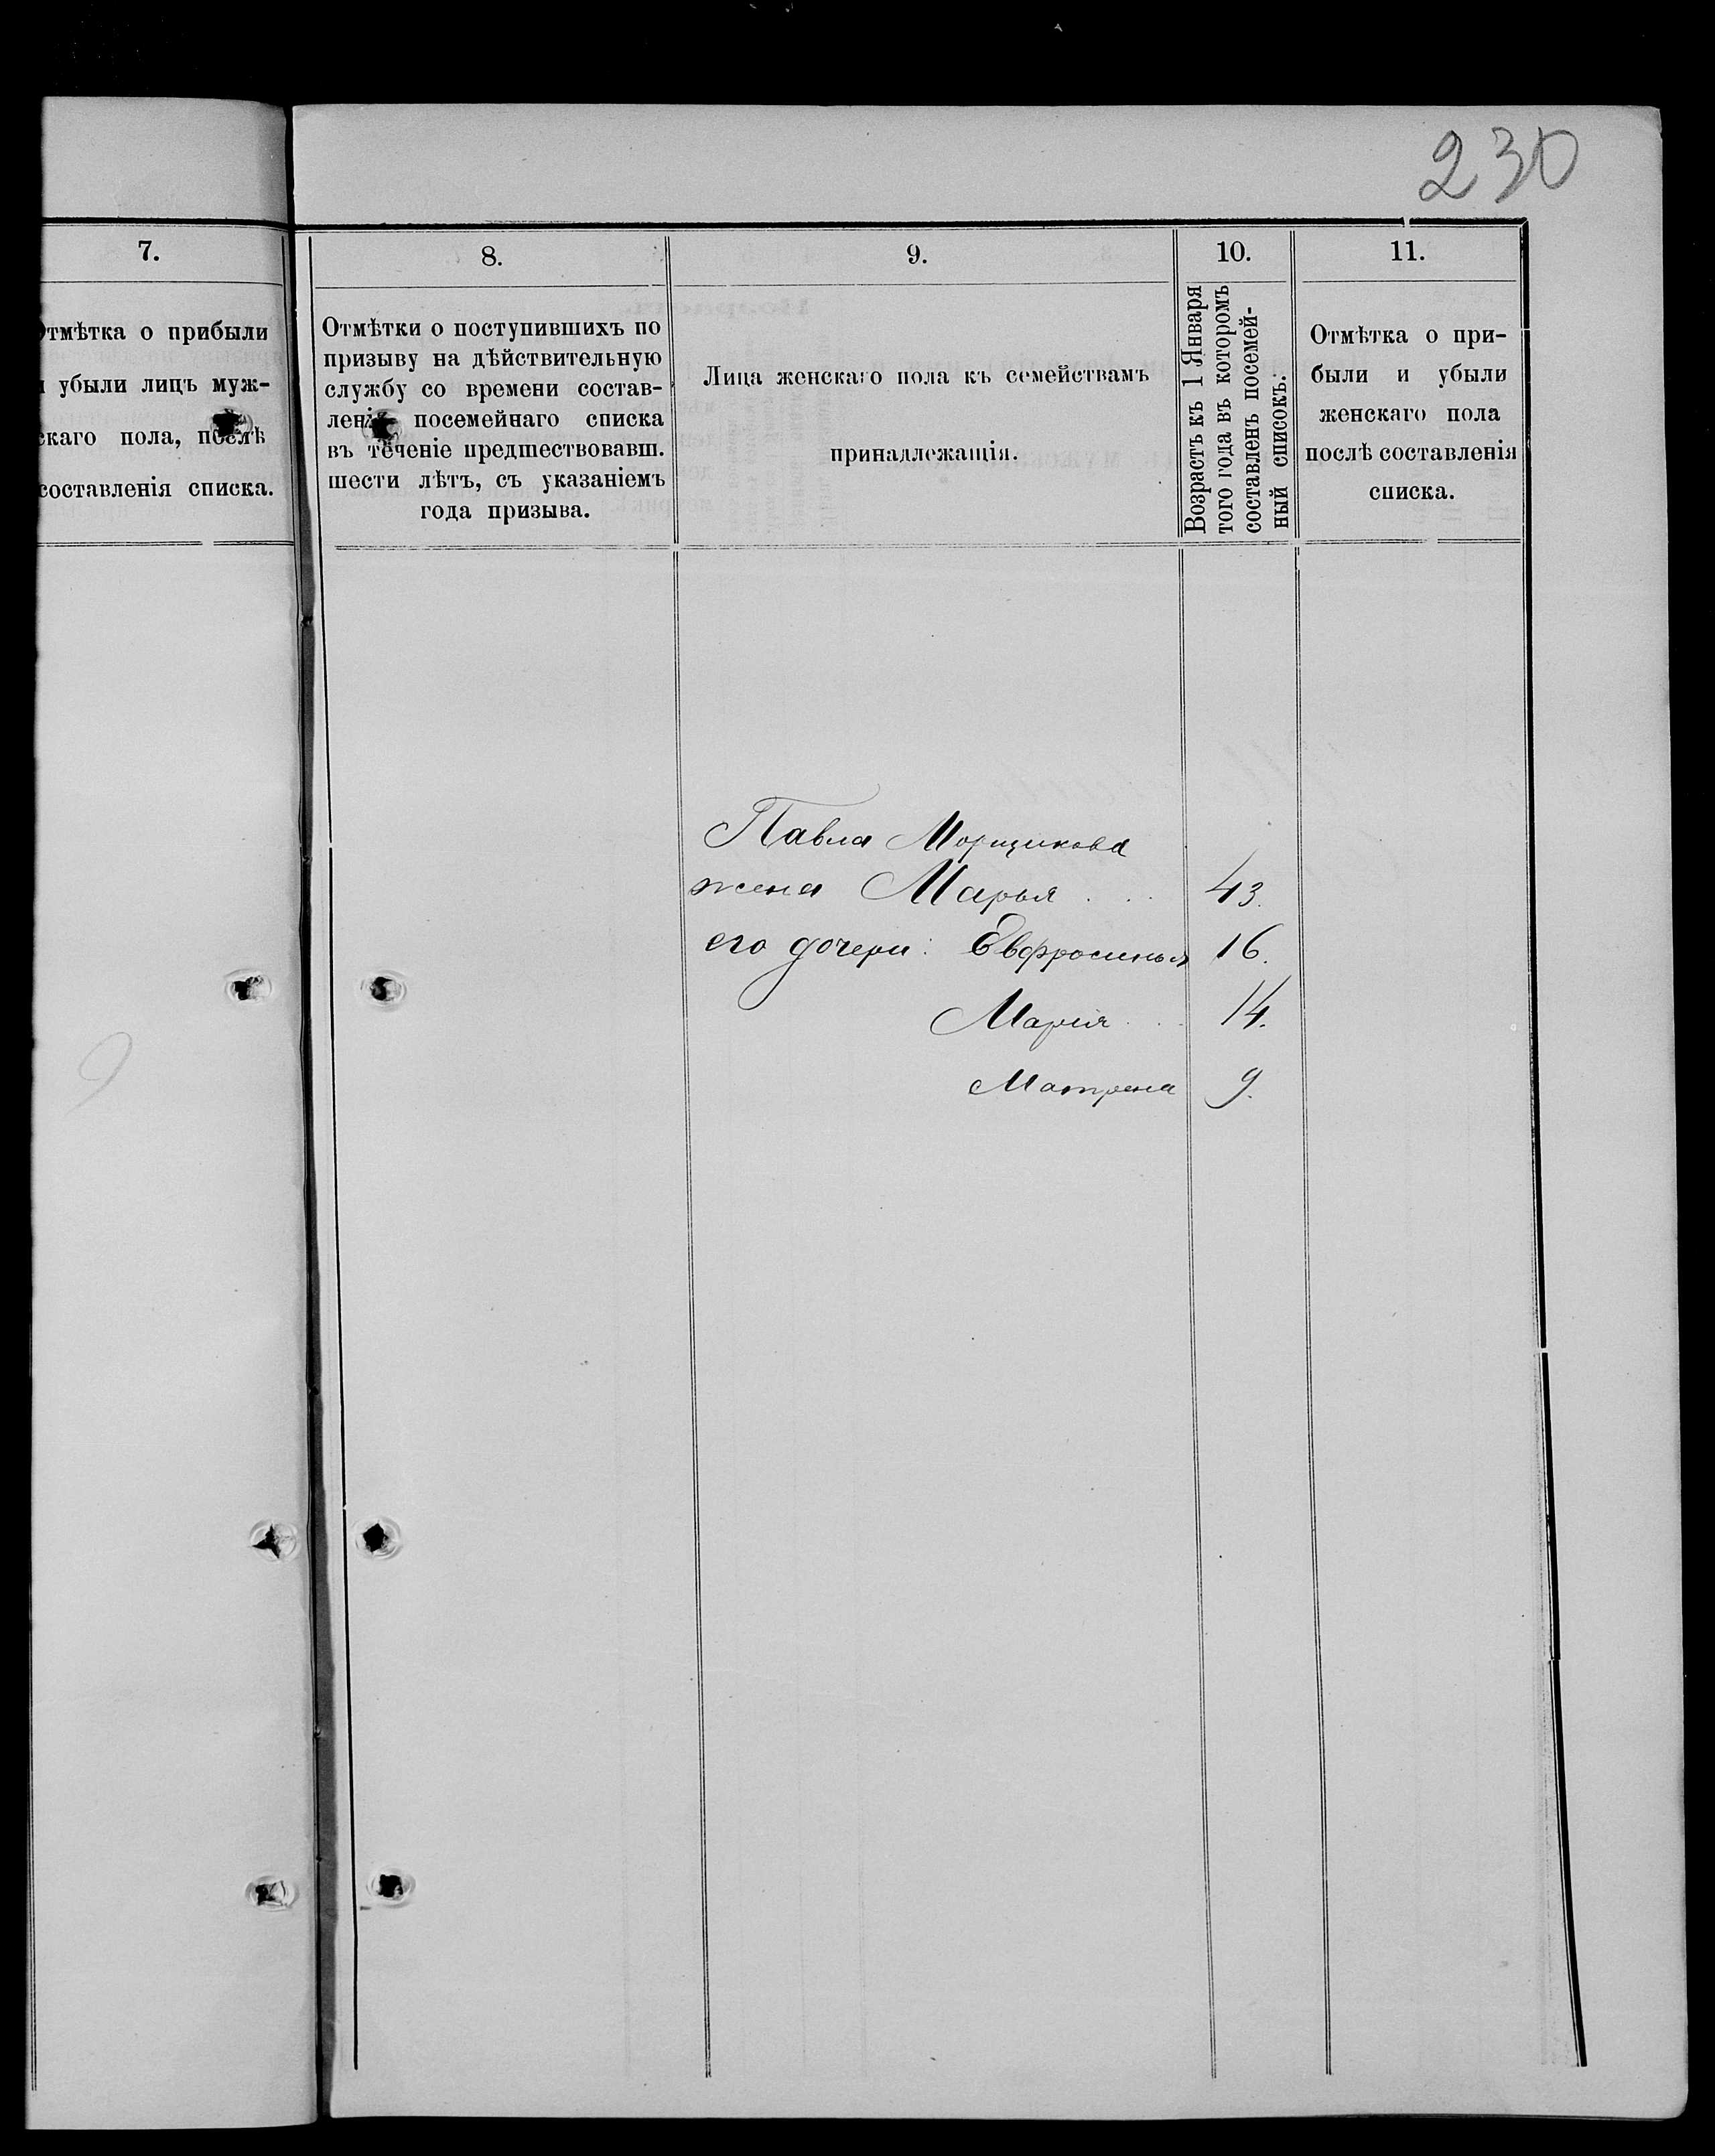 230
7.
Отмѣтка о прибыли
и убыли лицъ муж-
скаго пола, послѣ
составленія списка.
8.
Отмѣтки о поступившихъ по
призыву на дѣйствительную
службу со времени состав-
ленія посемейнаго списка
въ теченіе предшествовавш.
шести лѣтъ, съ указаніемъ
года призыва.
9.
Лица женскаго пола къ семействамъ
принадлежащія.
10.
Возрастъ къ 1 Января
того года въ которомъ
составленъ посемей-
ный списокъ.
11.
Отмѣтка о при-
были и убыли
женскаго пола
послѣ составленія
списка.
Павла Морщикова
жена Марья . . . 43.
его дочери: Евфросинья 16.
Марія . . . 14.
Матрена 9.